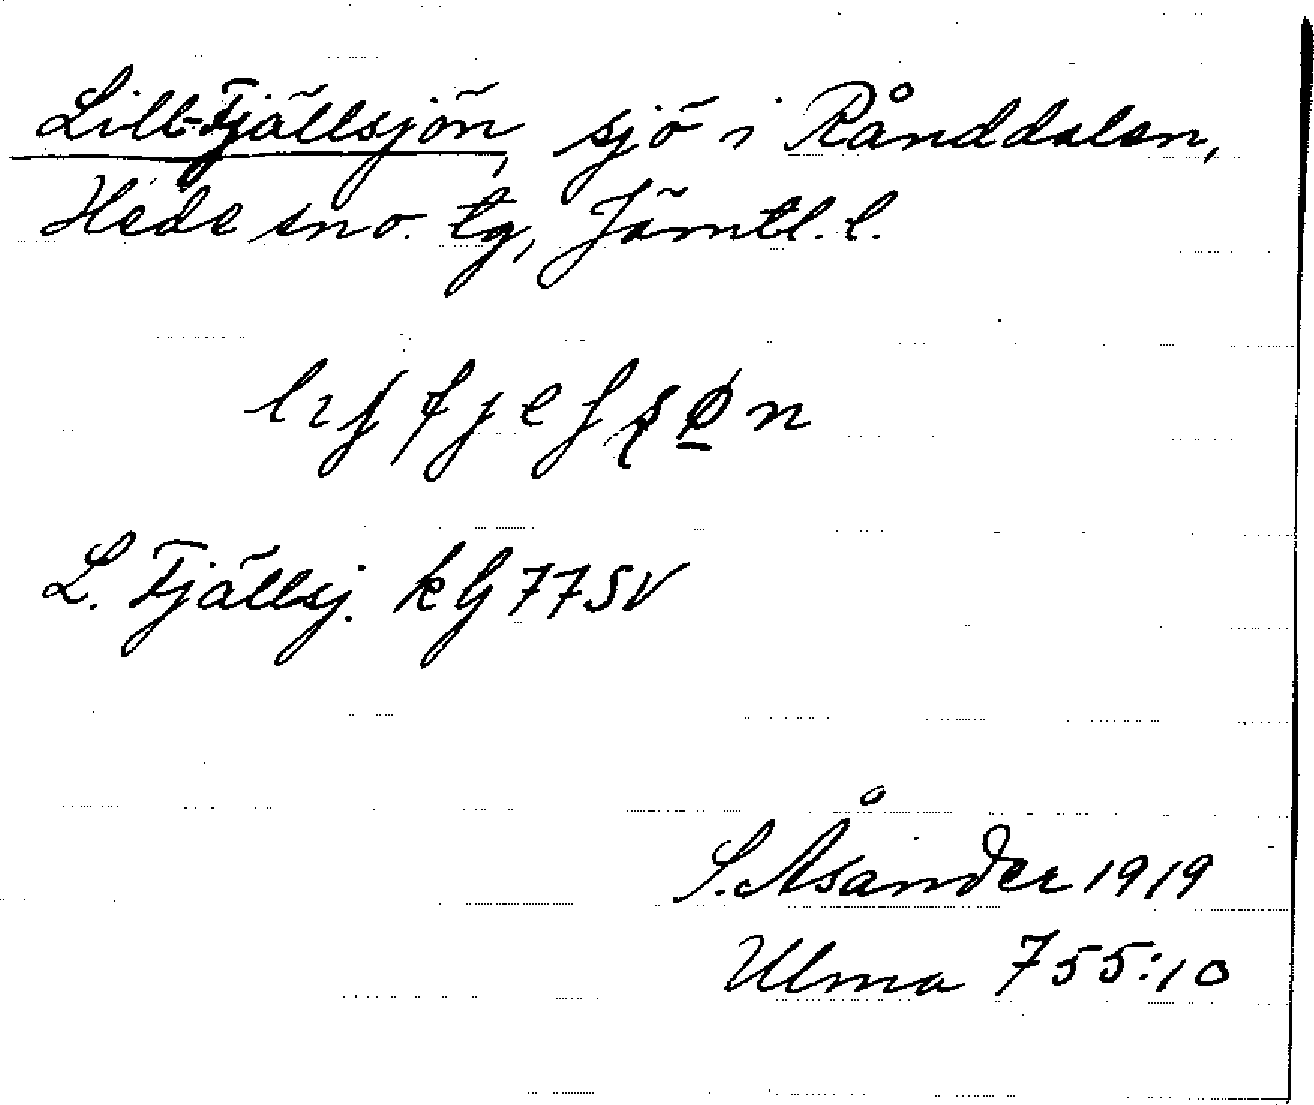 Lill-Fjällsjön, sjö i Rånddalen,
Hede sno. tg, Jämtl. l.
L. Fjällsj. kG 77SV
S. Åsander 1919
Ulma 755:10